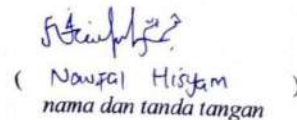 ( Nawfal Hisyam )
nama dan tanda tangan